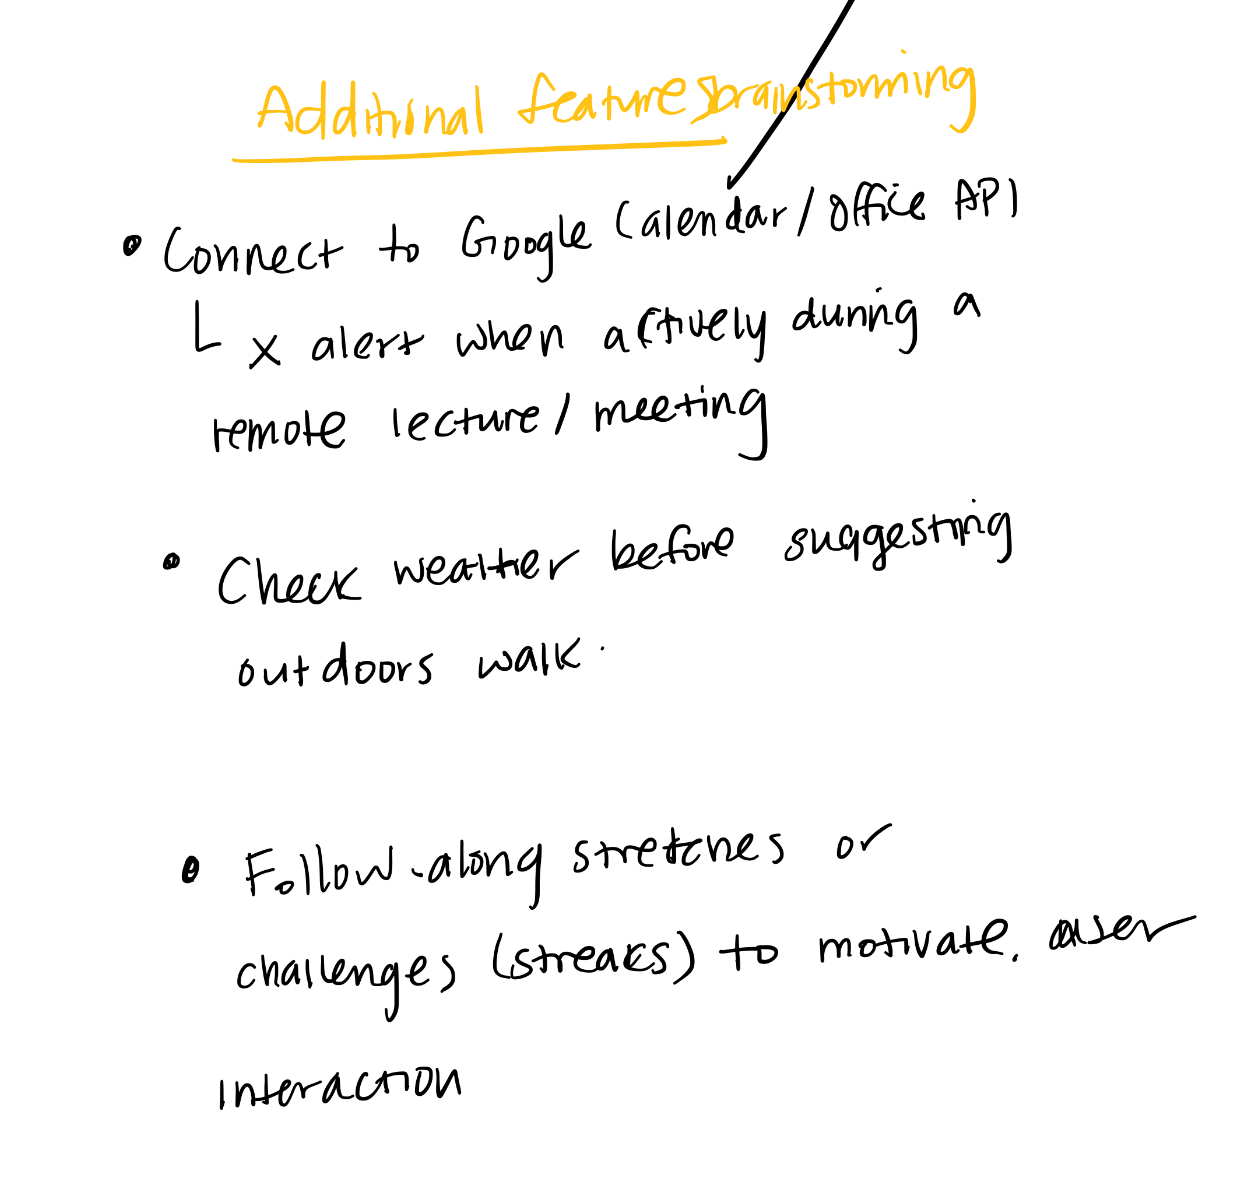 Additional features brainstorming
• Connect to Google Calendar/Office API
└ x alert when actively during a
remote lecture/meeting
• Check weather before suggesting
outdoors walk.
• Follow-along stretches or
challenges (streaks) to motivate. user
interaction